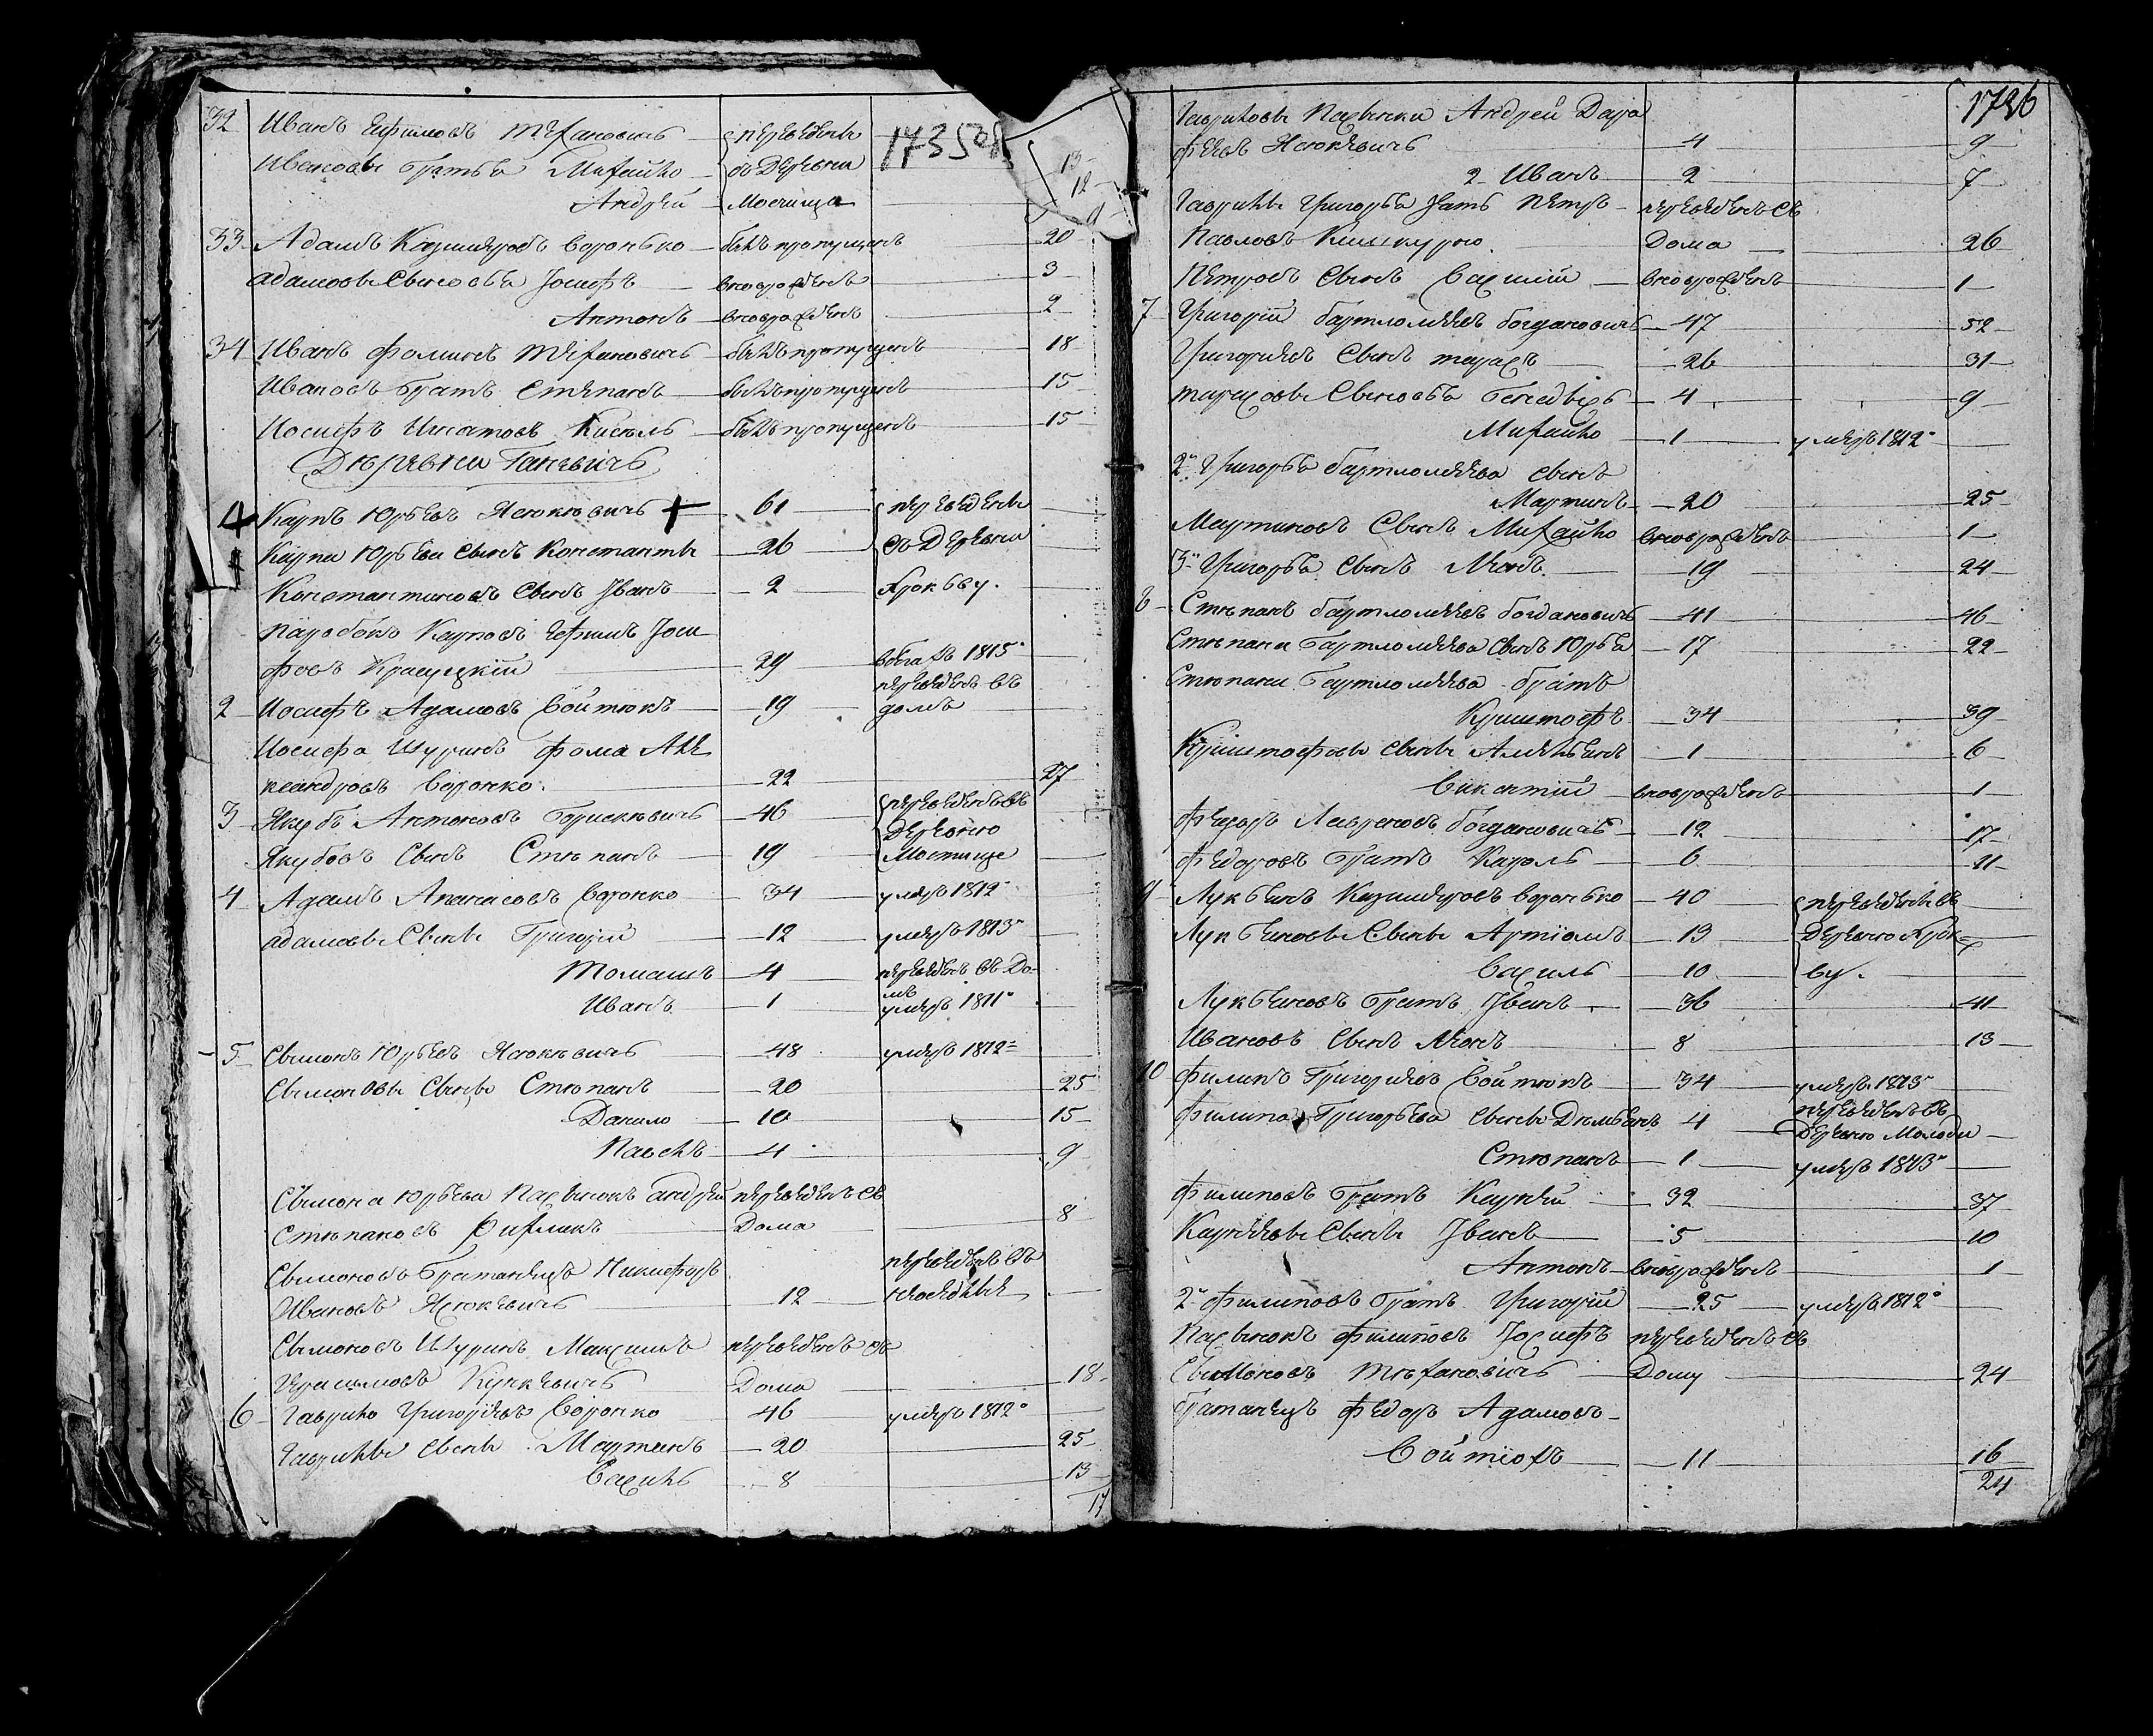 32 Иванъ Ефимовъ Техановичъ переведены 173508
Ивановы братья Михайло въ деревни 13
12
Андрей Мостища 9
33 Адамъ Казимеровъ Воронько былъ пропущенъ 20
Адамовы сыновья Іосифъ вновьрожденъ 3
Антонъ вновьрожденъ 2
34 Иванъ Фоминъ Техановичъ былъ пропущенъ 18
Ивановъ братъ Степанъ былъ пропущенъ 15
Иосифъ Игнатовъ Кисель былъ пропущенъ 15
Деревни Ганевичъ
Карпъ Юрьевъ Ясюкевичъ 61 переведены
Карпа Юрьева сынъ Константы 26 въ деревни
Константиновъ сынъ Іванъ 2
Паробокъ Карповъ Ефимъ Іоси
фовъ Красуцкій 29 вбегахъ 1815°
2 Иосифъ Адамовъ Войтюкъ 19 переведенъ въ
домъ
Иосифа Шуринъ Фома Але
ксандровъ Воронко 22 27
3 Якубъ Антоновъ Борисевичъ 46 переведенъ въ
деревню
Якубовъ сынъ Степанъ 19 Мостище
4 Адамъ Апанасовъ Воронко 34 умеръ 1812°
Адамовы сыны Григорій 12 умеръ 1813°
Томашъ 4 переведенъ въ до-
мъ
Иванъ 1 умеръ 1811°
5 Сымонъ Юрьевъ Ясюкевичъ 48 умеръ 1812°
Сымоновы сыны Степанъ 20 25
Данило 10 15
Павелъ 4 9
Сымона Юрьева пасынокъ Андрей переведенъ въ
Степановъ дома 8
Сымоновъ братанецъ Никифоръ переведенъ въ
Ивановъ Ясюкевичъ 12
Сымоновъ Шуринъ Максимъ переведенъ въ
Герасимовъ Кункевичъ дома 18
6 Гаврило Григорьевъ Воронко 46 умеръ 1812°
Гаврилы сыны Мартинъ 20 25
Василь 8 13
17
1726
Гавриловы пасынки Андрей Дара
феевъ Ясюкевичъ 4 9
2 Иванъ 2 7
Гаврилы Григорьева зять Петръ переведенъ въ
Павловъ дома 26
Петровъ сынъ Василій вновьрожденъ 1
7 Григорій Бартломеевъ Богдановичъ 47 52
Григорьевъ сынъ Тарасъ 26 31
Тарасовы сыновья Бенедыхъ 4 9
Михайло 1 умеръ 1812°
2й Григорья Бартломеева сынъ
Мартинъ 20 25
Мартиновъ сынъ Михайло вновьрожденъ 1
3й Григорья сынъ Леонъ 19 24
8 Степанъ Бартломеевъ Богдановичъ 41 46
Степана Бартломеева сынъ Юрья 17 22
Степана Бартломеева братъ
Криштофъ 34 39
Криштофовы сыны Амельянъ 1 6
Викентій вновьрожденъ 1
Федоръ Лавреновъ Богдановичъ 12 17
Федоровъ братъ Кароль 6 11
9 Лукьянъ Казимеровъ Воронько 40 переведены въ
Лукьяновы сыны Артіомъ 13 деревню
Василь 10
Лукьяновъ братъ Іванъ 36 41
Ивановъ сынъ Леонъ 8 13
10 Филипъ Григорьевъ Войтюкъ 34 умеръ 1813°
Филипа Григорьева сыны Демьянъ 4 переведенъ въ
деревню Молоди
Степанъ 1 умеръ 1813°
Филиповъ братъ Карней 32 37
Карнеевы сыны Іванъ 5 10
Антонъ вновьрожденъ 1
2й Филиповъ братъ Григорій 25 умеръ 1812°
Пасынокъ Филиповъ Іосифъ переведенъ въ
Сымоновъ Техановичъ дому 24
братанецъ Федоръ Адамовъ
Войтіохъ 11 16
24